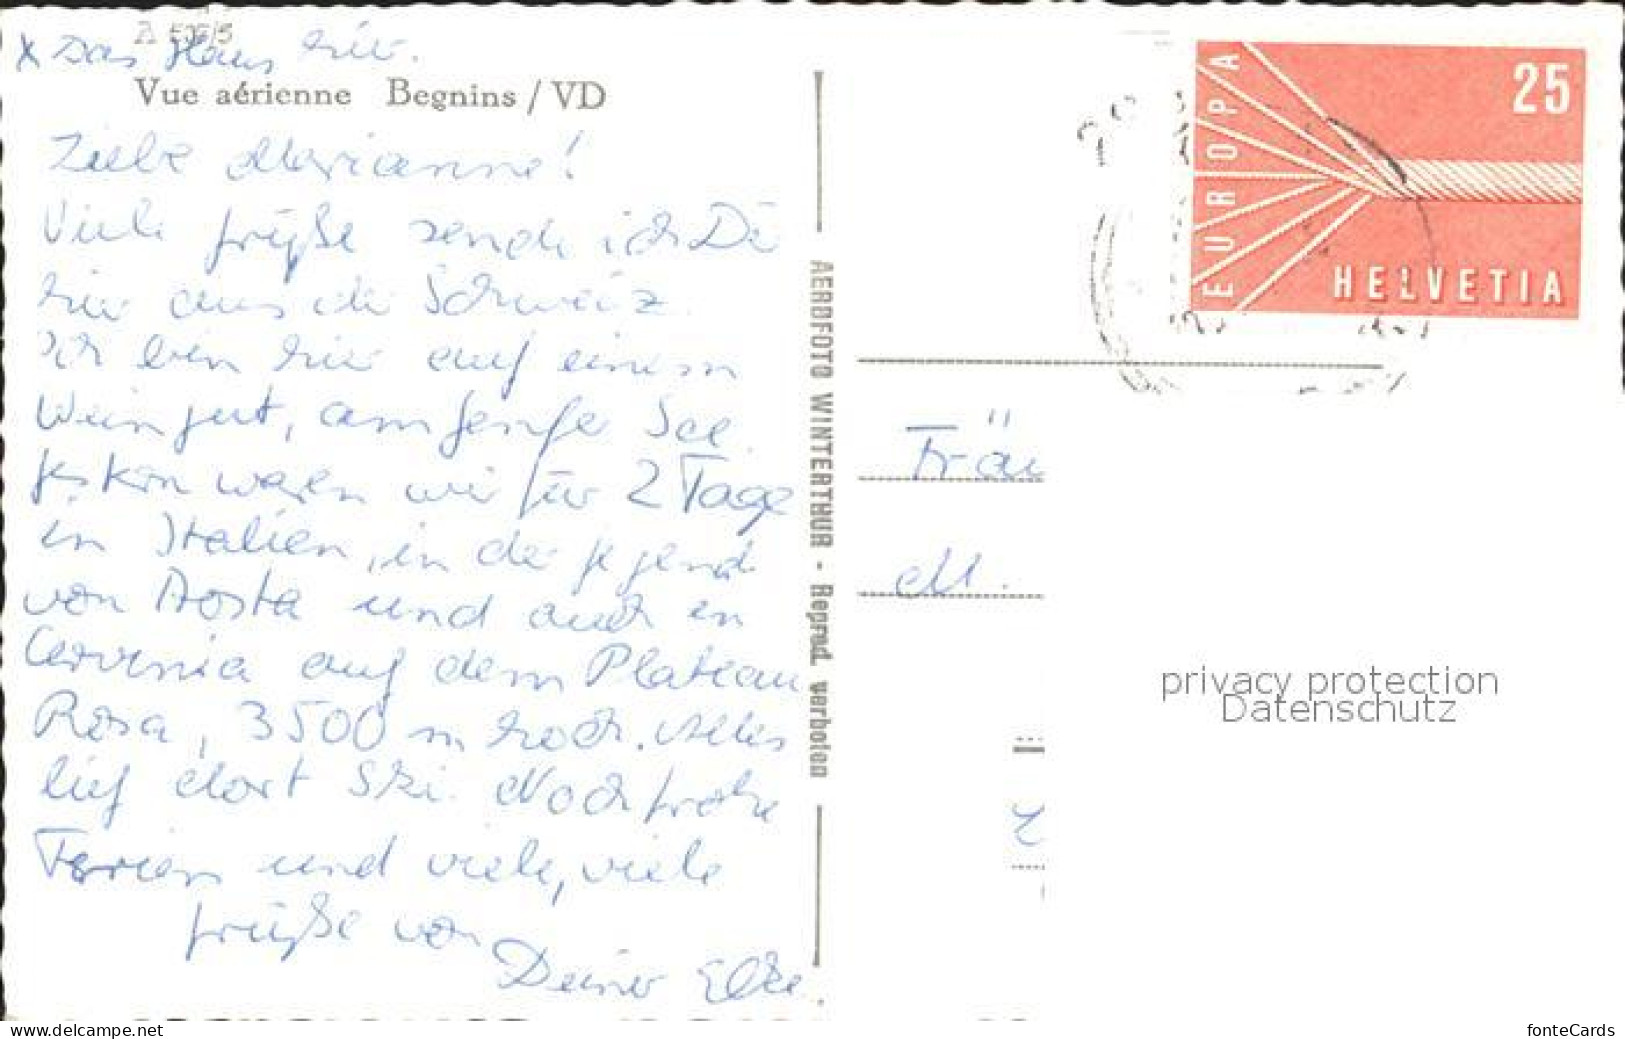 A 505/5
x Das Haus hier.
Vue aérienne Begnins / VD
Liebe Marianne!
Viele Grüße sende ich Dir
hier aus der Schweiz.
Ich bin hier auf einem
Weingut, am Genfer See.
Gestern waren wir für 2 Tage
in Italien, in der Gegend
von Aosta und auch in
Cervinia auf dem Plateau
Rosa, 3500 m hoch. Alles
lief dort Ski. Noch frohe
Ferien und viele, viele
Grüße von
Deiner Elke.
AEROFOTO WINTERTHUR - Reprod. verboten
EUROPA
25
HELVETIA
Fräu
M.
privacy protection
Datenschutz
www.delcampe.net
fonteCards